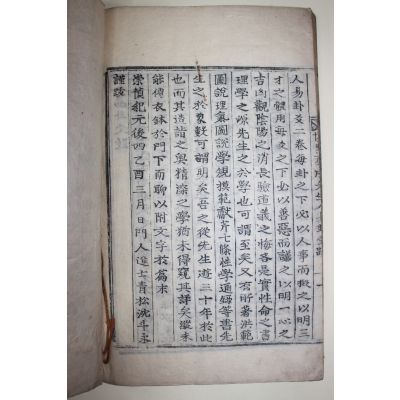 人易卦爻二卷每卦之下必以人事而擬之以明三
才之體用每爻之下必以善惡而議之以明一心之
吉凶觀陰陽之消長驗道義之悔吝是實性命之書
理學之嫄先生之於易學可謂至矣又有所著洪範
圖說理氣圖說學規模範獻芹七條性學通編等書先
生之於象數可謂明矣吾之從先生遊三十年於此
也而其造詣之奧精深之學猶未得窺其詳矣蹤未
能傳衣鉢於門下而聊以附文字於篇末
崇禎紀元後四乙酉三月日門人進士青松沈斗永
謹跋